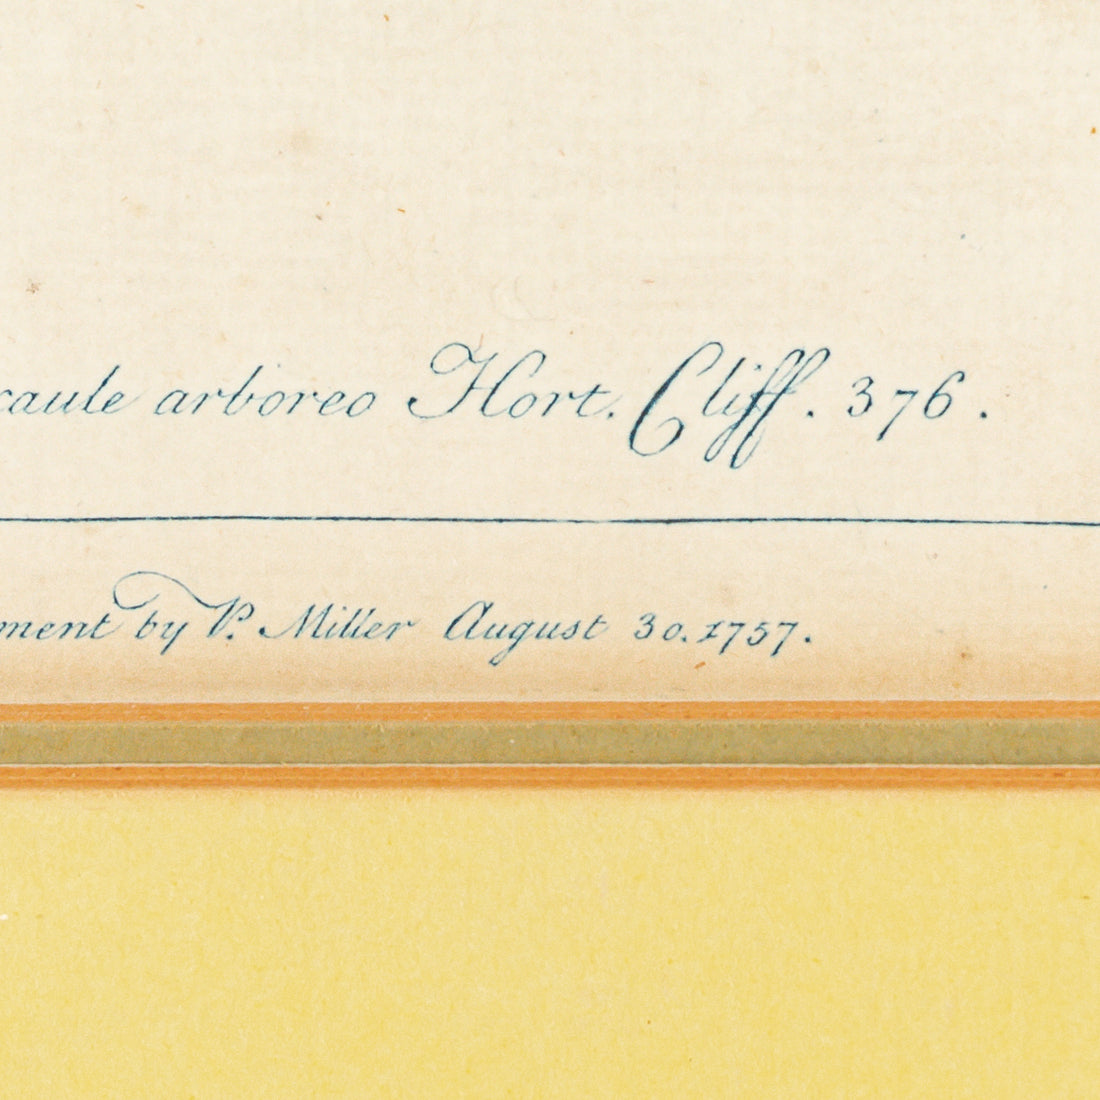 caule arboreo Hort. Cliff. 376.
ment by P. Miller August 30. 1757.